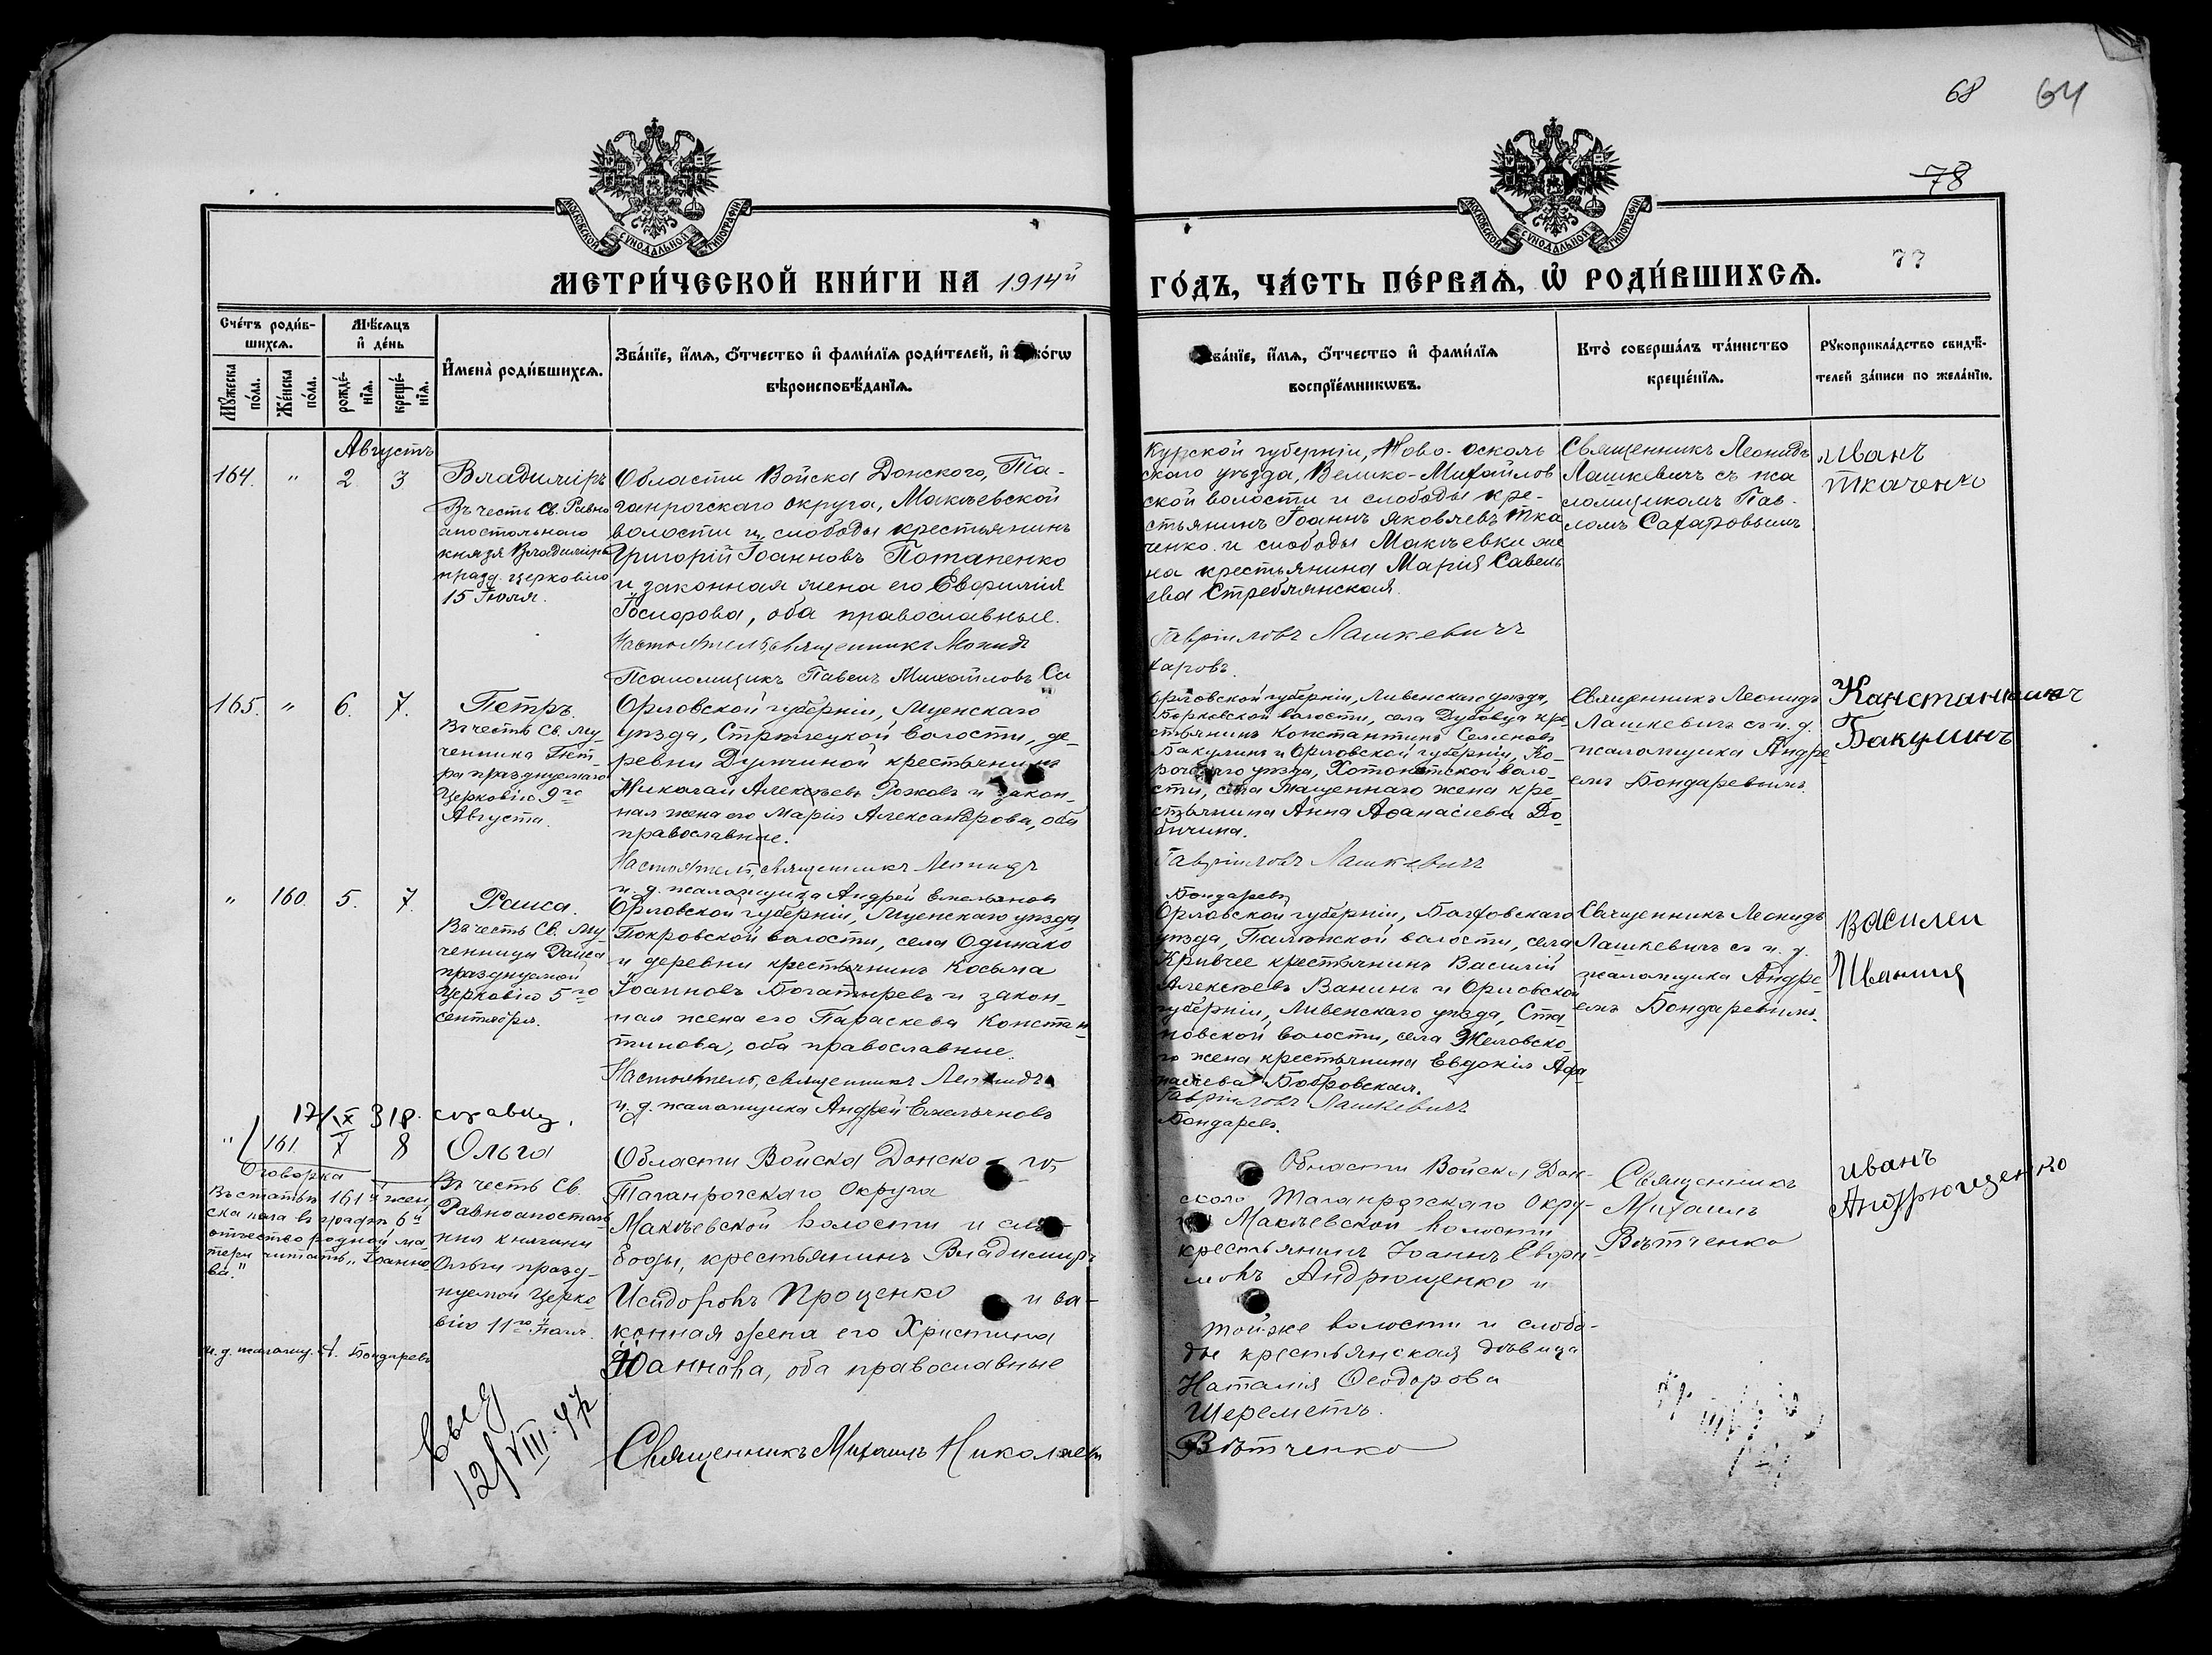 68 64
78
77
МОСКОВСКОЙ СѴНОДАЛЬНОЙ ТИПОГРАФІИ
МОСКОВСКОЙ СѴНОДАЛЬНОЙ ТИПОГРАФІИ
МЕТРИ́ЧЕСКОЙ КНИ́ГИ НА 1914й
ГО́ДЪ, ЧА́СТЬ ПЕ́РВАѦ, Ѡ РОДИ́ВШИХСѦ.
Сче́тъ роди́в-
шихсѧ.
Мѣ́сѧцъ
и҆ де́нь
Му́жеска
по́ла.
Же́нска
по́ла.
рожде́-
нїѧ.
креще́-
нїѧ.
И҆мена̀ роди́вшихсѧ.
Зва́нїе, и҆́мѧ, ѻ҆́тчество и҆ фами́лїѧ роди́телей, и҆ како́гѡ
вѣроисповѣ́данїѧ.
Зва́нїе, и҆́мѧ, ѻ҆́тчество и҆ фами́лїѧ
воспрїе́мникѡвъ.
Кто̀ соверша́лъ та́инство
креще́нїѧ.
Рꙋкоприкла́дство свидѣ́-
телей за́писи по жела́нїю.
Августъ
164. " 2 3
Владиміръ
Въ честь Св. Равно
апостольнаго
князя Владиміра
празд. церковію
15 Іюля.
Области Войска Донского, Та-
ганрогскаго округа, Макѣевской
волости и слободы крестьянинъ
Григорій Іоанновъ Потапенко
и законная жена его Евфимія
Іосифова, оба православные.
Настоятель, священникъ Леонидъ
Псаломщикъ Павелъ Михайловъ Са
Курской губерніи, Ново-Осколь
скаго уѣзда, Велико-Михайлов
ской волости и слободы кре-
стьянинъ Іоаннъ Яковлевъ Тка
ченко и слободы Макѣевки же
на крестьянина Марія Савель
ева Стреблянская.
Гавріиловъ Лашкевичъ
харовъ.
Священникъ Леонидъ
Лашкевичъ съ пса
ломщикомъ Пав-
ломъ Сахаровымъ
Иванъ
Ткаченко
165. " 6. 7.
Петръ.
Въ честь Св. Му-
ченика Пет-
ра празднуемаго
Церковію 9го
Августа.
Орловской губерніи, Мценскаго
уѣзда, Стрѣлецкой волости, де-
ревни Думчиной крестьянинъ
Николай Алексѣевъ Рожковъ и закон-
ная жена его Марія Александрова, оба
православные.
Настоятель, священникъ Леонидъ
и. д. псаломщика Андрей Емельяновъ
Орловской губерніи, Ливенскаго уѣзда,
Борковской волости, села Дубовца кре-
стьянинъ Константинъ Семеновъ
Бакулинъ и Орловской губерніи,
уѣзда, Хотонетской воло-
сти, села жена кре
стьянина Анна Аѳанасіева До-
бычина.
Гавріиловъ Лашкевичъ
Бондаревъ
Священникъ Леонидъ
Лашкевичъ съ и. д.
псаломщика Андре
емъ Бондаревымъ.
Бакулинъ
" 160. 5. 7.
Раиса.
Въ честь Св. Му-
ченицы Раисы
празднуемой
Церковію 5го
Сентября.
Орловской губерніи, Мценскаго уѣзда,
Покровской волости, села Одинако
и деревни крестьянинъ Косьма
Іоанновъ Богатыревъ и закон-
ная жена его Параскева Констан-
тинова, оба православные.
Настоятель, священникъ Леонидъ
и. д. псаломщика Андрей Емельяновъ
Орловской губерніи, Болховскаго
уѣзда, Пальчской волости, села
Кривчее крестьянинъ Василій
Алексѣевъ Ванинъ и Орловской
губерніи, Ливенскаго уѣзда, Ста
новской волости, села
жена крестьянина Евдокія Афа
насіева Бобровская.
Гавріиловъ Лашкевичъ
Бондаревъ.
Священникъ Леонидъ
Лашкевичъ съ и. д.
псаломщика Андре-
емъ Бондаревымъ.
Василеи
справку.
" 161. 7 8
Ольга
Въ честь Св.
Равноапостоль
ныя княгини
Ольги празд-
нуемой Церко
вію 11го Іюля.
Оговорка
Въ статьѣ 161й жен
ска пола въ графѣ 6й
отчество родной ма-
тери читать „Іоанно
ва."
и. д. псаломщ. А. Бондаревъ
Области Войска Донско-го
Таганрогскаго Округа
Макѣевской волости и сло-
боды, крестьянинъ Владимиръ
Исидоровъ Проценко и за-
конная жена его Христина
Іоаннова, оба православные
Священникъ Михаилъ Николаевъ
Области Войска Дон-
ского Таганрогскаго Окру-
га Макѣевской волости
крестьянинъ Іоаннъ Евфи-
мовъ Андрющенко и
той-же волости и слобо-
ды крестьянская дѣвица
Наталія Ѳеодорова
Шереметъ.
Вѣтченко
Священникъ
Михаилъ
Вѣтченко
Иванъ
Андрющенко
12/VIII-47